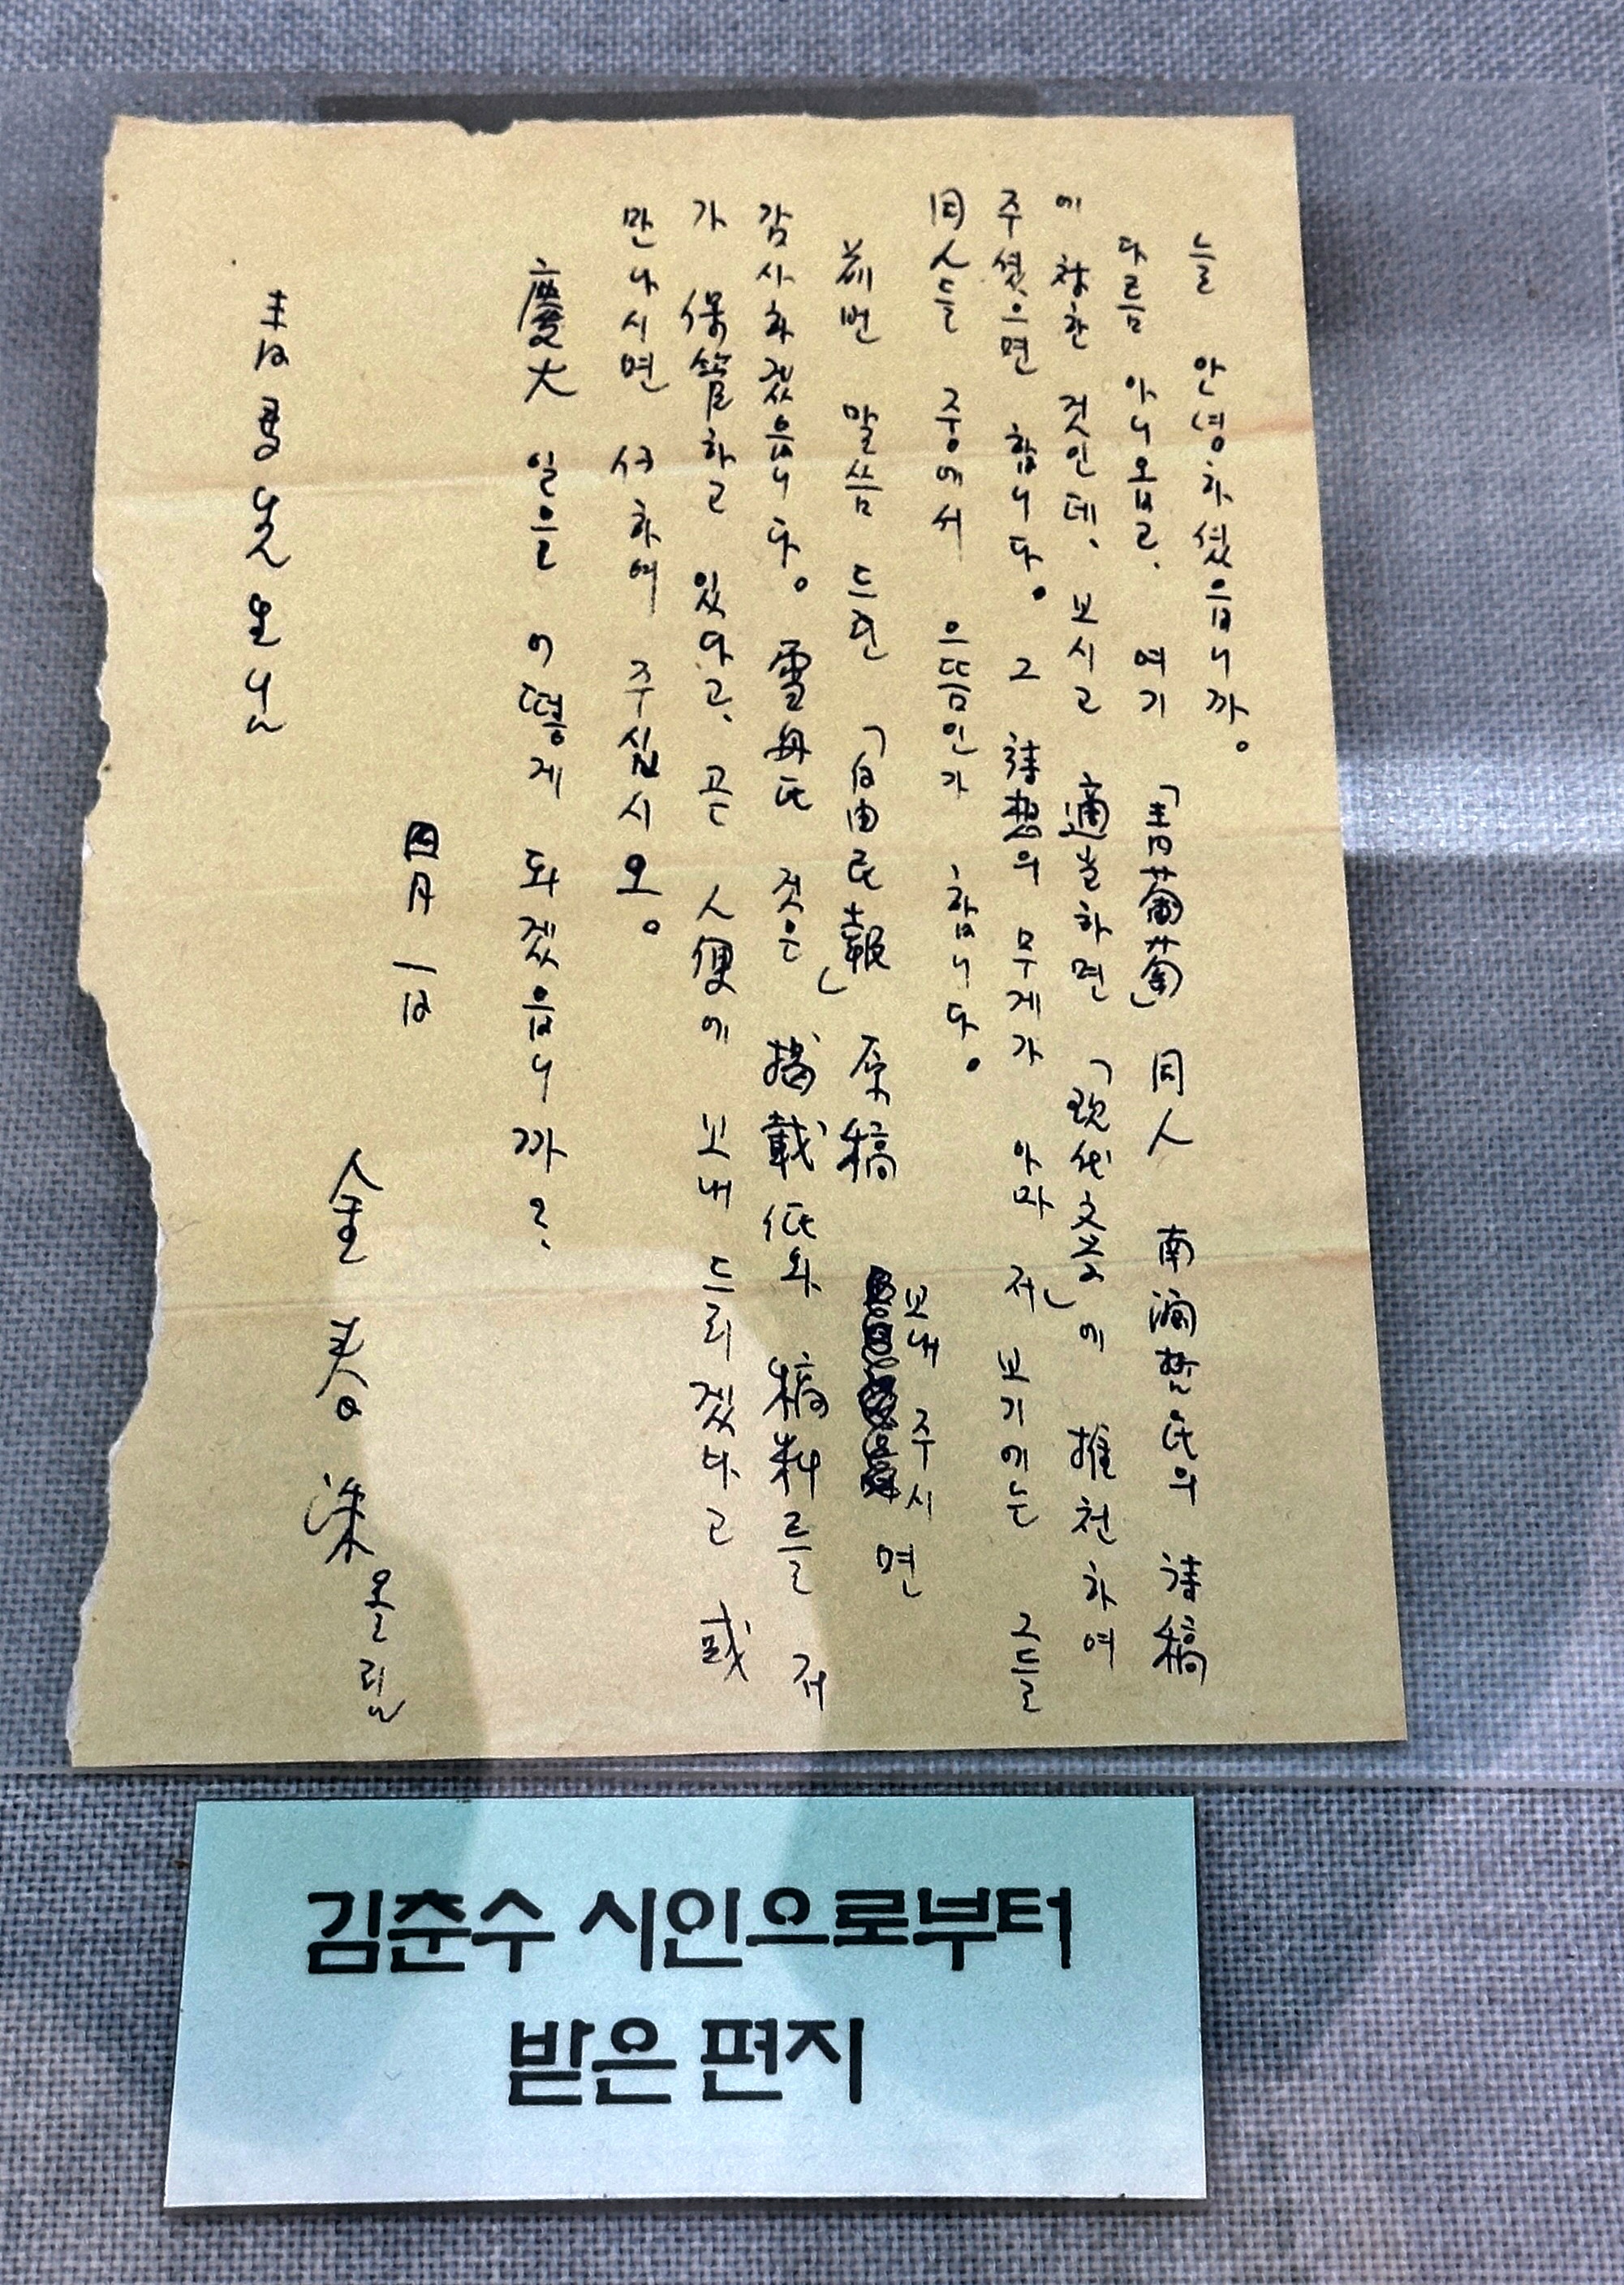 늘 안녕하셨읍니까。
다름 아니옵고、 여기 「靑葡萄」 同人 南潤哲氏의 詩稿
에 창한 것인데、 보시고 適当하면 「現代文學」에 推천하여
주셨으면 합니다。 그 詩想의 무게가 아마 저 보기에는 그들
同人들 중에서 으뜸인가 합니다。
前번 말씀 드린 「自由民報」 原稿 보내 주시면
감사하겠읍니다。 雪舟氏 것은 揭載紙와 稿料를 저
가 保管하고 있다고、 곧 人便에 보내 드리겠다고 或
만나시면 仔하여 주십시오。
慶大 일은 어떻게 되겠읍니까?
四月 一日
金 春 洙 올림
靑馬先生님
김춘수 시인으로부터
받은 편지